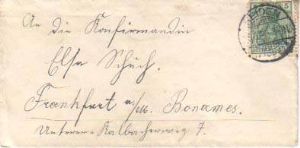 An die Konfirmandin
Else Schüch.
Frankfurt a/M. Bonames.
Unterer Kalbacherweg 7.
5